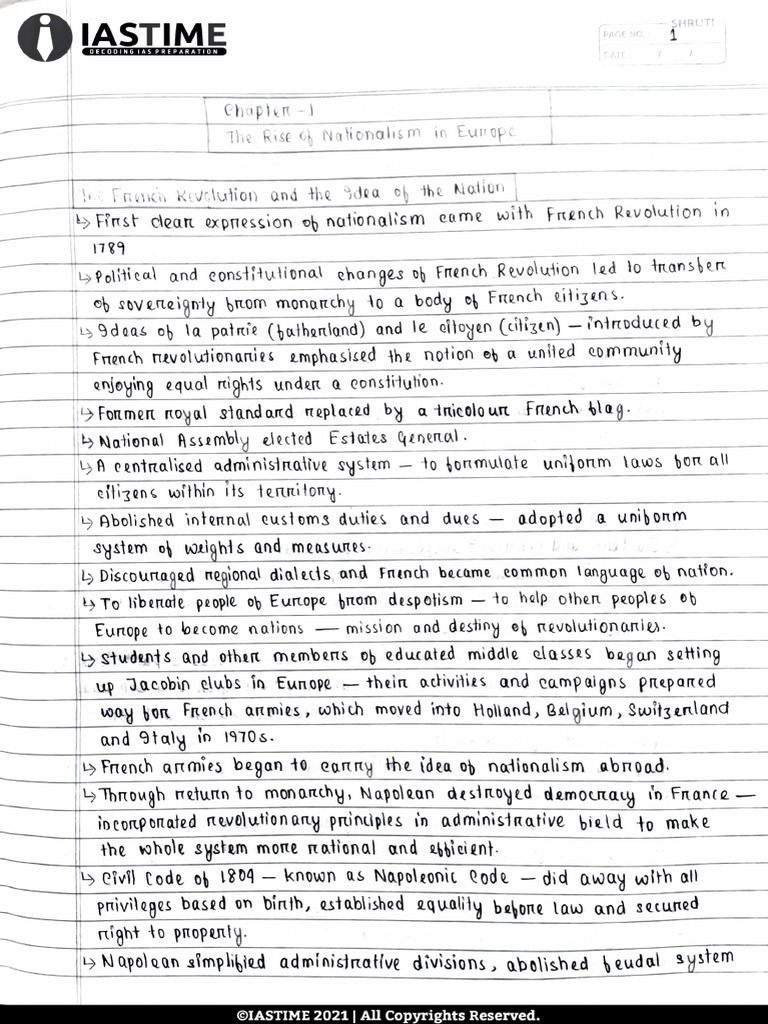 IASTIME
DECODING IAS PREPARATION
SHRUTI
PAGE NO.: 1
DATE: / /
Chapter-1
The Rise of Nationalism in Europe
The French Revolution and the Idea of the Nation
↳ First clear expression of nationalism came with French Revolution in
1789
↳ Political and constitutional changes of French Revolution led to transfer
of sovereignty from monarchy to a body of French citizens.
↳ Ideas of la patrie (fatherland) and le citoyen (citizen) — introduced by
French revolutionaries emphasised the notion of a united community
enjoying equal rights under a constitution.
↳ Former royal standard replaced by a tricolour French flag.
↳ National Assembly elected Estates General.
↳ A centralised administrative system — to formulate uniform laws for all
citizens within its territory.
↳ Abolished internal customs duties and dues — adopted a uniform
system of weights and measures.
↳ Discouraged regional dialects and French became common language of nation.
↳ To liberate people of Europe from despotism — to help other peoples of
Europe to become nations — mission and destiny of revolutionaries.
↳ Students and other members of educated middle classes began setting
up Jacobin clubs in Europe — their activities and campaigns prepared
way for French armies, which moved into Holland, Belgium, Switzerland
and Italy in 1970s.
↳ French armies began to carry the idea of nationalism abroad.
↳ Through return to monarchy, Napolean destroyed democracy in France —
incorporated revolutionary principles in administrative field to make
the whole system more rational and efficient.
↳ Civil Code of 1804 — known as Napoleonic Code — did away with all
privileges based on birth, established equality before law and secured
right to property.
↳ Napolean simplified administrative divisions, abolished feudal system
©IASTIME 2021 | All Copyrights Reserved.